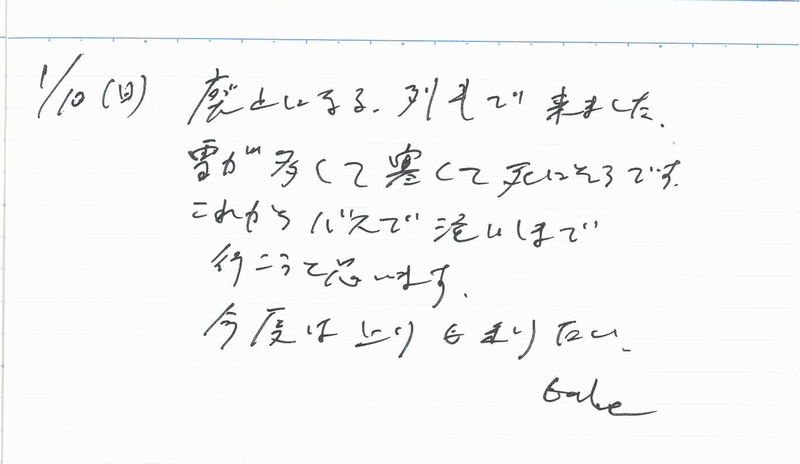 1/10(日) 廃止になる、列車で来ました。
雪が多くて寒くて死にそうです。
これからバスで まで
行こうと思います。
今度は上りも乗りたい。